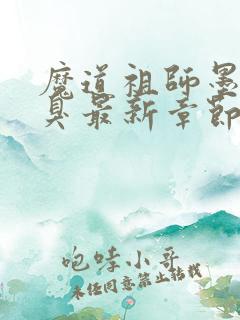 魔道祖师墨
臭最新章節
咆哮小哥
未经同意禁止转载